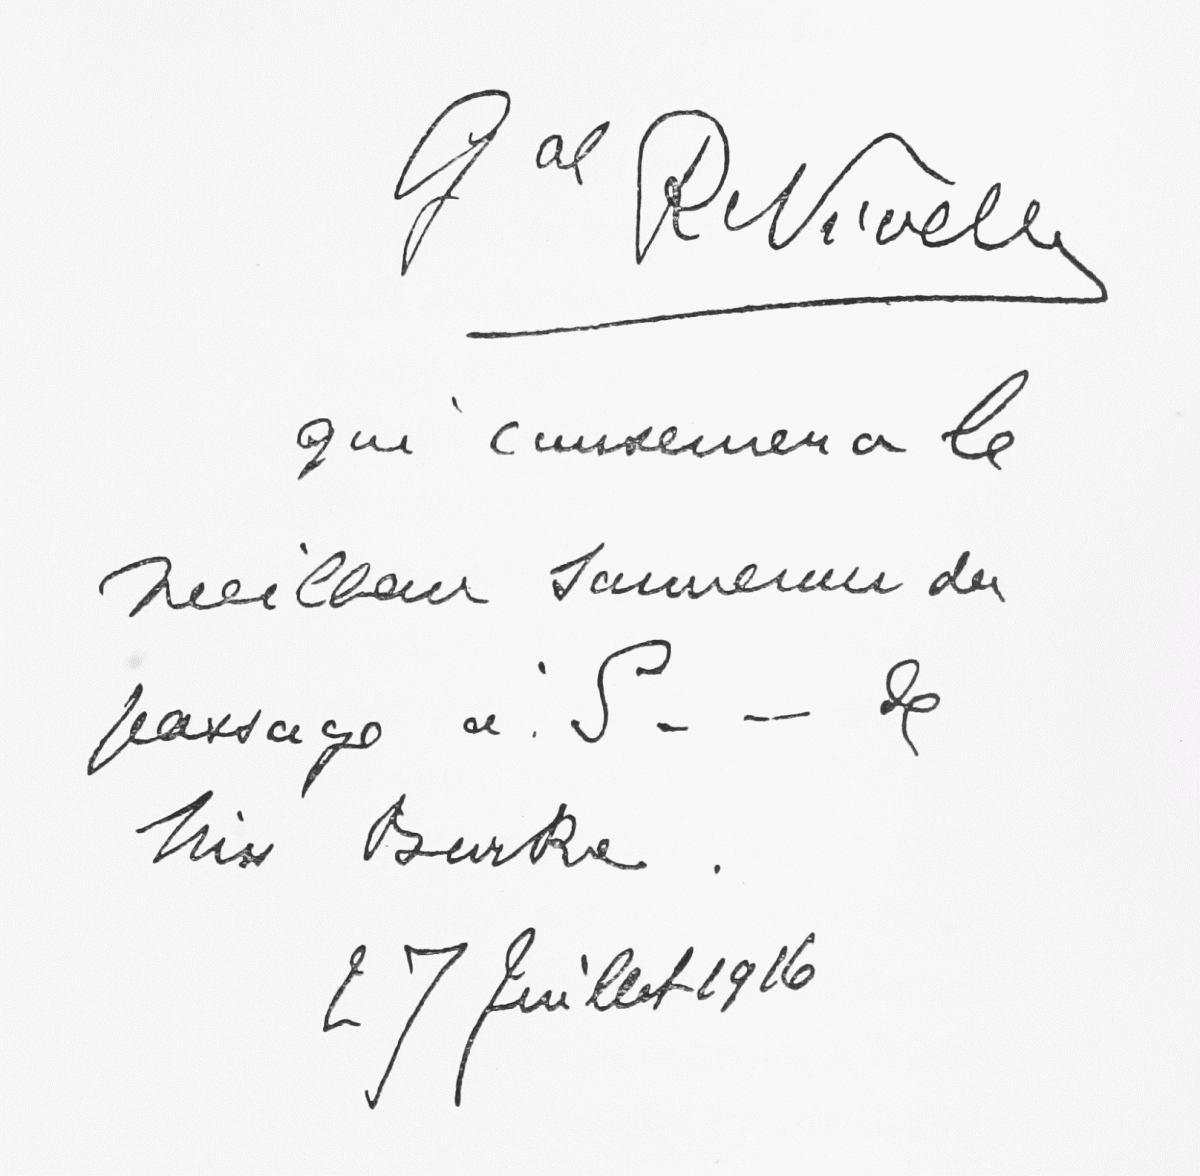 Gal R Nivelle
qui conservera le
meilleur souvenir du
passage à S- -- de
Miss Burke.
27 Juillet 1916